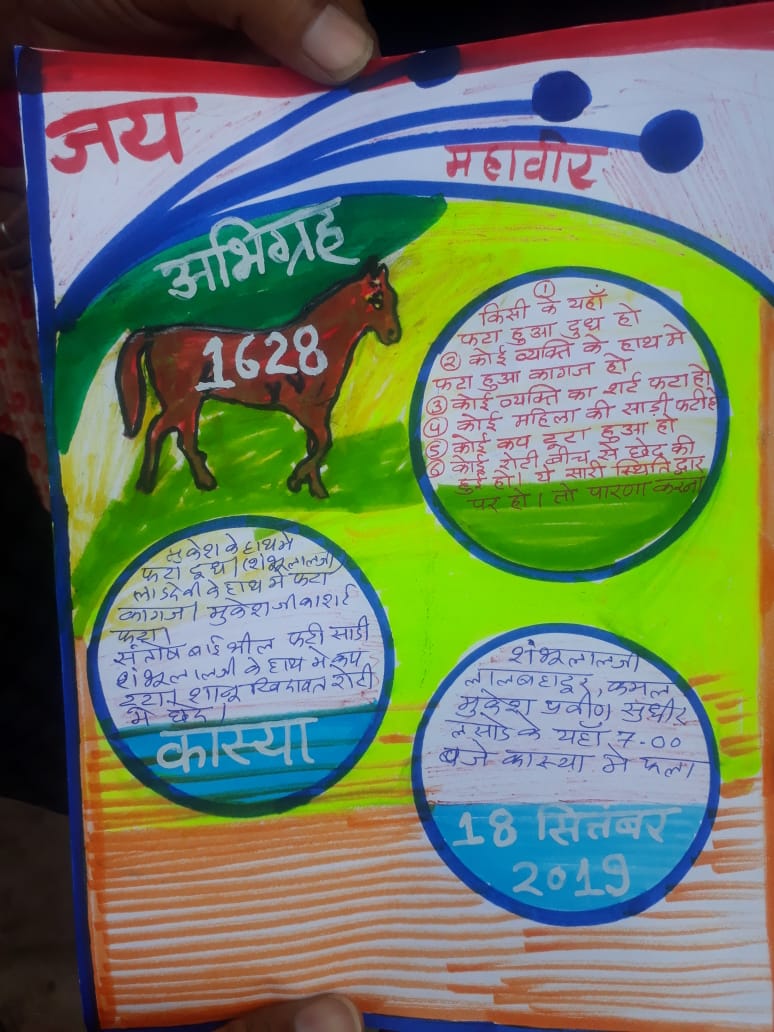 जय
महावीर
अभिग्रह
1628
①
किसी के यहाँ
फटा हुआ दुध हो
② कोई व्यक्ति के हाथ मे
फटा हुआ कागज हो
③ कोई व्यक्ति का शर्ट फटा हो
④ कोई महिला की साड़ी फटी हो
⑤ कोई कप टूटा हुआ हो
⑥ कोई रोटी बीच से छेद की
हुई हो। ये सारी स्थिति द्वार
पर हो। तो पारणा करना
मुकेश के हाथ मे
फटा दूध। (शंभूलालजी)
लाडदेवी के हाथ मे फटा
कागज। मुकेशजी का शर्ट
फटा।
संतोष बाई भील फटी साडी
शंभूलालजी के हाथ मे कप
टूटा, रोटी
मे छेद।
कास्या
शंभूलालजी
लालबहादूर, कमल
मुकेश प्रवीण सुधीर
लसोड के यहाँ 7.00
बजे कास्या मे फला
18 सितंबर
2019